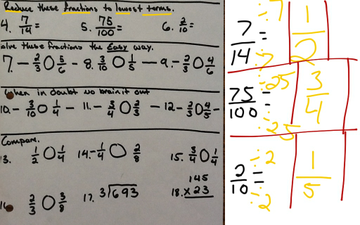 Reduce these fractions to lowest terms.
4. 7/14 = 5. 75/100 = 6. 2/10 =
Solve these fractions the easy way.
7. - 2/3 ○ 5/6 - 8. 3/10 ○ 1/5 - 9. - 2/3 ○ 4/6
When in doubt we
10. - 3/10 ○ 1/4 - 11. - 3/4 ○ 2/3 - 12 - 2/3 ○ 4/5 -
Compare.
13. 1/2 ○ 1/4 14. - 1/4 ○ 2/8 15. 3/4 ○ 1/4
16. 2/3 ○ 3/8 17. 3)693 18. 145 x 23
7/14 = ÷7 ÷7 1/2
75/100 = ÷25 ÷25 3/4
2/10 = ÷2 ÷2 1/5